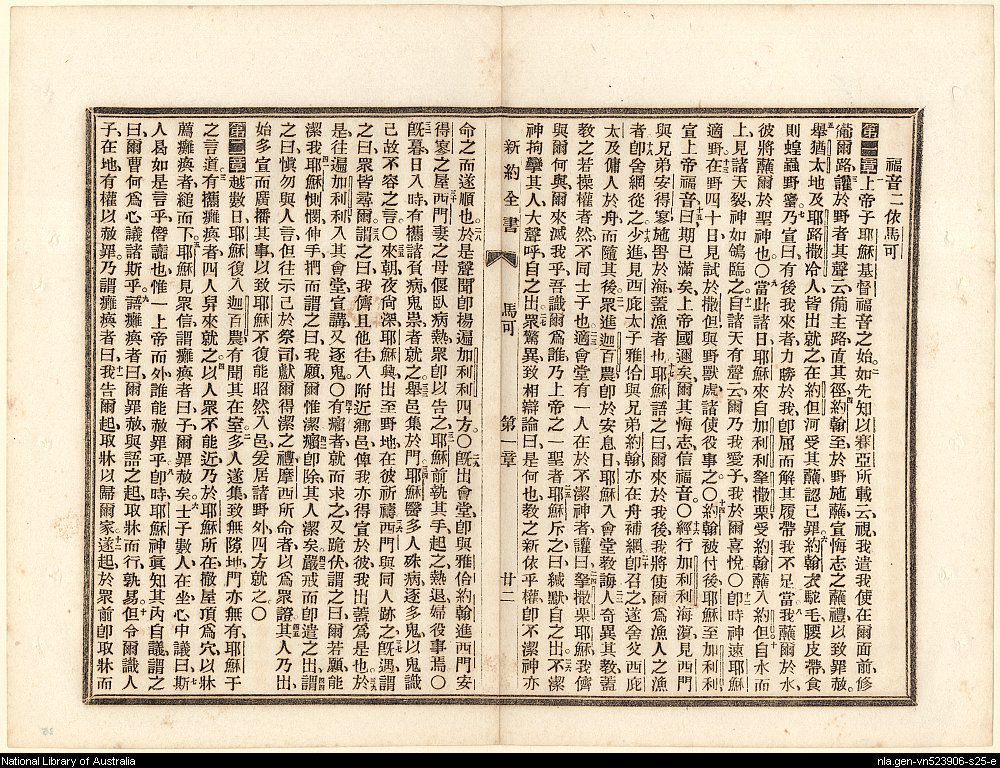 福音二依馬可
第一章上帝子耶穌基督福音之始如先知以賽亞所載云視我遣我使在爾面前修
備爾路讙於野者其聲云備主路直其徑約翰至於野施蘸宣悔志之蘸禮以致罪赦
舉猶太地及耶路撒冷人皆出就之在約但河受其蘸認己罪約翰衣駝毛腰皮帶食
則蝗蟲野蜜乃宣曰有後我來者力勝於我卽屈而解其履帶我不足當我蘸爾於水
彼將蘸爾於聖神也〇當此諸日耶穌來自加利利拏撒栗受約翰蘸入約但自水而
上見諸天裂神如鴿臨之自諸天有聲云爾乃我愛子我於爾喜悅〇卽時神速耶穌
適野在野四十日見試於撒但與野獸處諸使役事之〇約翰被付後耶穌至加利利
宣上帝福音曰期已滿矣上帝國邇矣爾其悔志信福音〇經行加利利海濱見西門
與兄弟安得寡施罟於海蓋漁者也耶穌語之曰爾來於我後我將使爾爲漁人之漁
者卽舍網從之少進見西庇太子雅恰與兄弟約翰亦在舟補網卽召之遂舍父西庇
太及傭人於舟而隨其後衆進迦百農卽於安息日耶穌入會堂教誨人奇異其教蓋
教之若操權者然不同士子也適會堂有一人在於不潔神者讙曰拏撒栗耶穌我儕
與爾何與爾來滅我乎吾識爾爲誰乃上帝之一聖者耶穌斥之曰緘默自之出不潔
神拘攣其人大聲呼自之出衆驚異致相辯論曰是何也教之新依乎權卽不潔神亦
新約全書 馬可 第一章 廿二
命之而遂順也於是聲聞卽揚遍加利利四方〇旣出會堂卽與雅恰約翰進西門安
得寡之屋西門妻之母偃臥病熱衆卽以告之耶穌前執其手起之熱退婦役事焉〇
旣暮日入時有攜諸負病鬼祟者就之舉邑集於門耶穌醫多人殊病逐多鬼以鬼識
己故不容之言〇來朝夜尙深耶穌興出至野地在彼祈禱西門與同人跡之旣遇謂
之曰衆皆尋爾謂之曰我儕且他往入附近鄉邑俾我亦得宣於彼我出蓋爲是也於
是往遍加利利入其會堂宣講又逐鬼〇有癩者就而求之又跪伏謂之曰爾若願能
潔我耶穌惻憫伸手捫而謂之曰我願爾惟潔癩卽除其人潔矣嚴戒而卽遣之出謂
之曰愼勿與人言但往示己於祭司獻爾得潔之禮摩西所命者以爲衆證其人乃出
始多宣而廣播其事以致耶穌不復能昭然入邑爰居諸野外四方就之〇
第二章越數日耶穌復入迦百農有聞其在室多人遂集致無隙地門亦無有耶穌于
之言道有攜癱瘓者四人舁來就之以人衆不能近乃於耶穌所在撤屋頂爲穴以牀
薦癱瘓者縋而下耶穌見衆信謂癱瘓者曰子爾罪赦矣士子數人在坐心中議曰斯
人曷如是言乎僭讟也惟一上帝而外誰能赦罪乎卽時耶穌神冥知其內自議謂之
曰爾曹何爲心議諸斯乎語癱瘓者曰爾罪赦與語之起取牀而行孰易但令爾識人
子在地有權以赦罪乃謂癱瘓者曰我告爾起取牀以歸爾家遂起於衆前卽取牀而
National Library of Australia
nla.gen-vn523906-s25-e